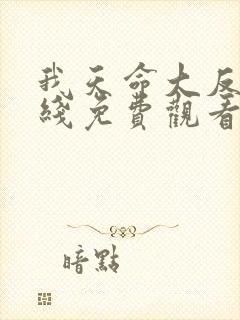 我天命大反
綫免費觀看
暗點